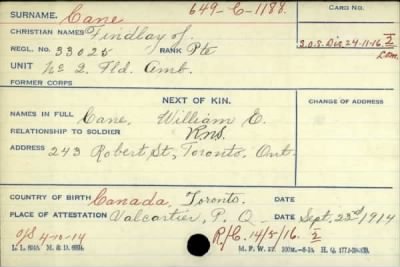 SURNAME. Cane 649-C-1188. CARD NO.
CHRISTIAN NAMES Findlay J.
REGL. NO. 33025 RANK Pte S.O.S. Dis 24-11-16
UNIT No 2. Fld. Amb.
FORMER CORPS
NEXT OF KIN. CHANGE OF ADDRESS
NAMES IN FULL Cane, William E.
RELATIONSHIP TO SOLDIER
ADDRESS 243 Robert St., Toronto, Ont.
COUNTRY OF BIRTH Canada, Toronto. DATE
PLACE OF ATTESTATION Valcartier, P. Q. DATE Sept. 23rd 1914
O/S 4-10-14 R/C. 14/5/16. 2
M. F. W. 22.